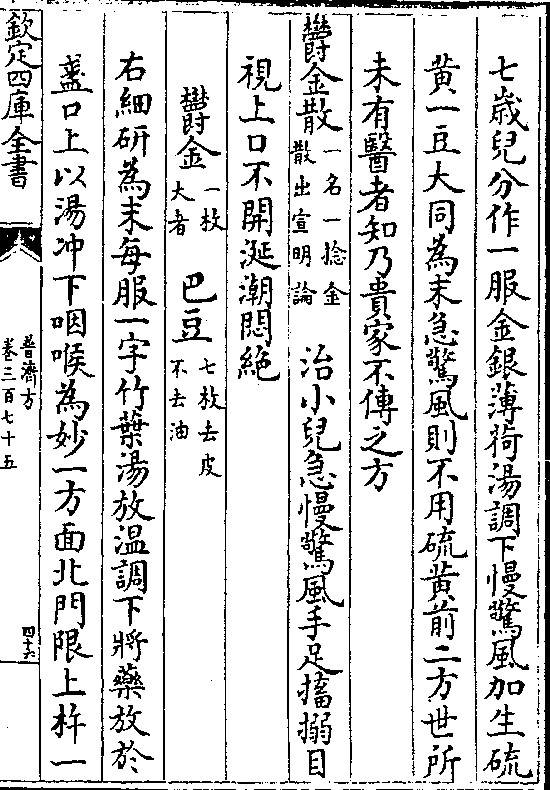 七歳兒分作一服金銀薄荷湯調下慢驚風加生硫
黄一豆大同為末急驚風則不用硫黄前二方世所
未有醫者知乃貴家不傳之方
鬱金散一名一捻金散出宣明論 治小兒急慢驚風手足搐搦目
視上口不開涎潮悶絶
鬱金一枚大者 巴豆七枚去皮不去油
右細研為末每服一字竹葉湯放温調下將藥放於
盞口上以湯冲下咽喉為妙一方面北門限上杵一
欽定四庫全書
普濟方
卷三百七十五
四十六